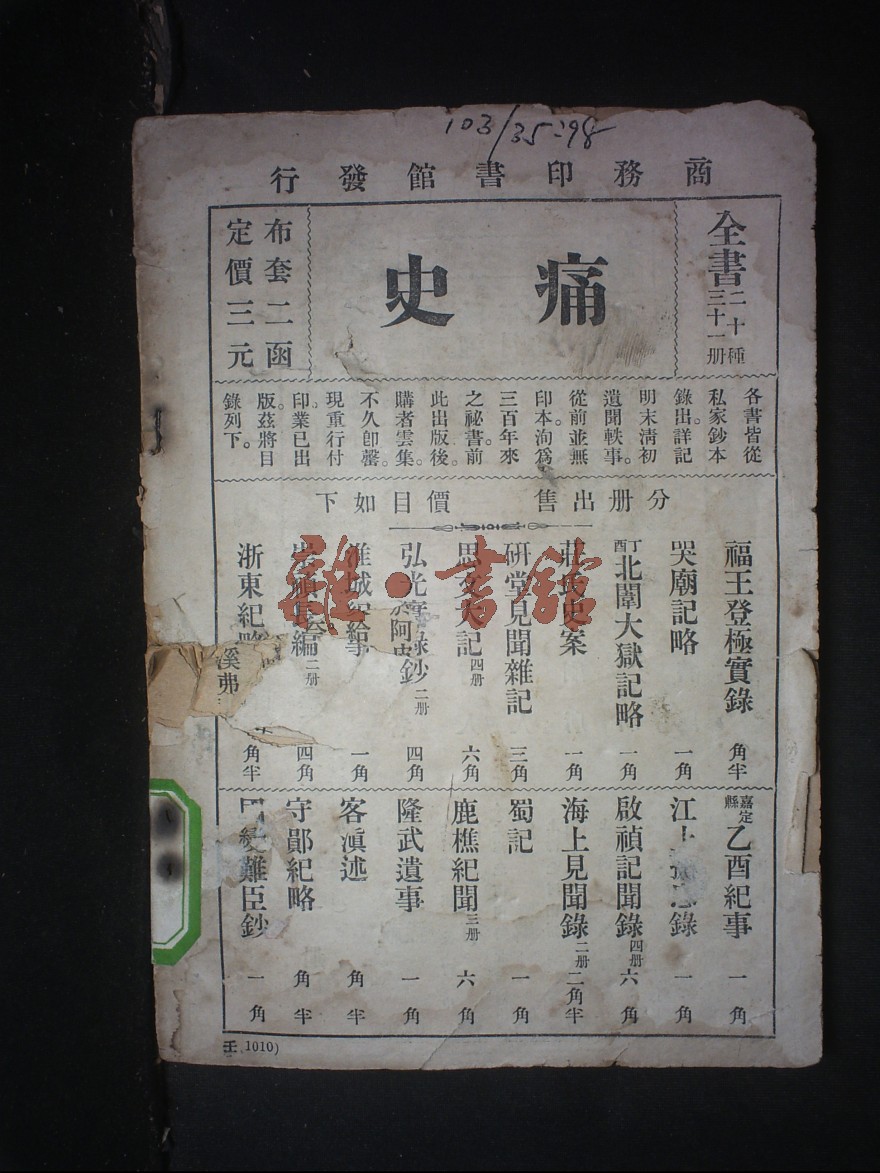 103/35-98
商務印書館發行
全書二十種三十一册
痛史
布套二函
定價三元
各書皆從
私家鈔本
錄出。詳記
明末清初
遺聞軼事。
從前並無
印本。洵爲
三百年來
之祕書。前
此出版後。
購者雲集。
不久卽罄。
現重行付
印。業已出
版。茲將目
錄列下。
分册出售 價目如下
福王登極實錄 角半
哭廟記略 一角
丁酉北闈大獄記略 一角
莊氏史案 一角
研堂見聞雜記 三角
思文大記 四册 六角
弘光實錄鈔 二册 四角
淮城紀事 一角
崇禎長編 二册 四角
浙東紀略 角半
嘉定縣乙酉紀事 一角
江 錄 一角
啟禎記聞錄 四册 六角
海上見聞錄 二册 二角半
蜀記 一角
鹿樵紀聞 三册 六角
隆武遺事 一角
客滇述 角半
守鄖紀略 角半
難臣鈔 一角
溪弗
阿
壬 1010)
雜·書館